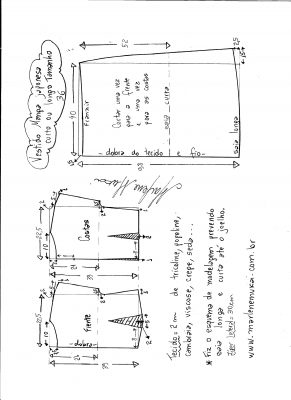 Vestido Manga Japonesa
curto ou longo Tamanho
36
52
2,5
Franzir
Cortar uma vez
para a frente
e uma vez
para as costas
saia curta
40
- dobra do tecido e fio -
saia longa
98
Marlene Mukai
22,5
10
Costas
24
39
20,5
10
frente
- dobra -
24
39
Tecido = 2 m de tricoline, popeline,
cambraia, viscose, crepe, seda...
* Fiz o esquema de modelagem prevendo
saia longa e curta até o joelho.
Zíper lateral = 30cm
www.marlenemukai.com.br